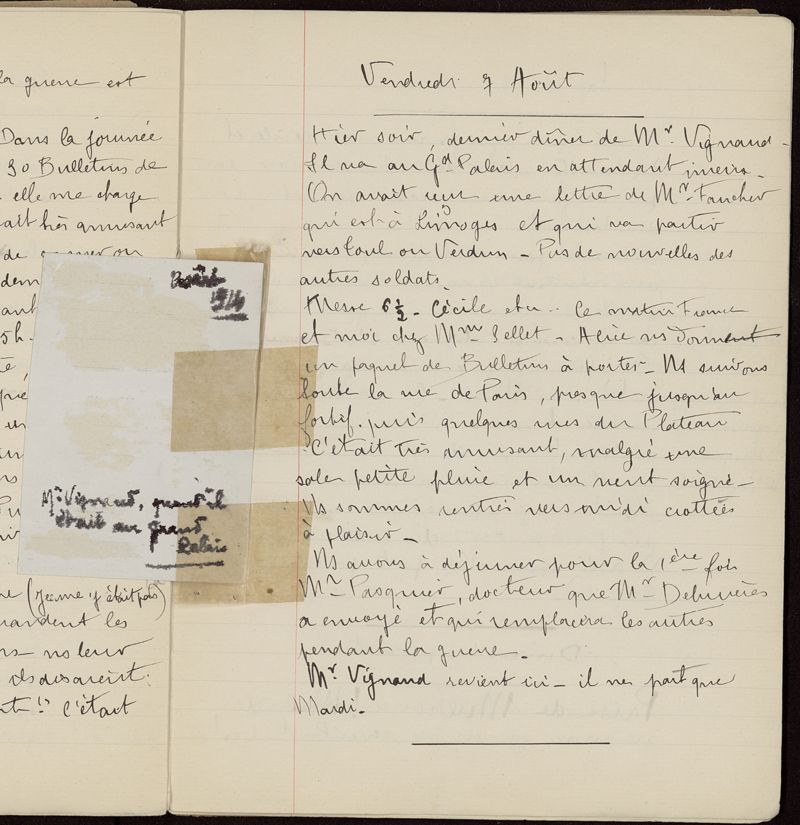 la guerre est
Dans la journée
30 Bulletins de
elle me charge
ait très amusant
de
dem
ant
5h.
Août
1914
Mr Vignaud, quand il
était au Grand
Palais
(Jeanne y était pas)
mandent les
ns leur
ils disaient:
C'était
Vendredi 7 Août
Hier soir, dernier dîner de Mr. Vignaud.
Il va au Gd Palais en attendant mieux.
On avait reçu une lettre de Mr. Faucher
qui est à Limoges et qui va partir
vers Toul ou Verdun – Pas de nouvelles des
autres soldats.
Messe 6 ½ – Cécile etu .. Ce matin France
et moi chez Mme Pellet – Alice ns donnent
un paquet de Bulletins à porter – Ns suivons
toute la rue de Paris, presque jusqu'au
fortif. puis quelques rues du Plateau
C'était très amusant, malgré une
sale petite pluie et un vent soigné –
Ns sommes rentrés vers midi crottées
à plaisir –
Ns avons à déjeuner pour la 1ère fois
Mr Pasquier, docteur que Mr
a envoyé et qui remplacera les autres
pendant la guerre –
Mr Vignaud revient ici – il ne part que
Mardi –